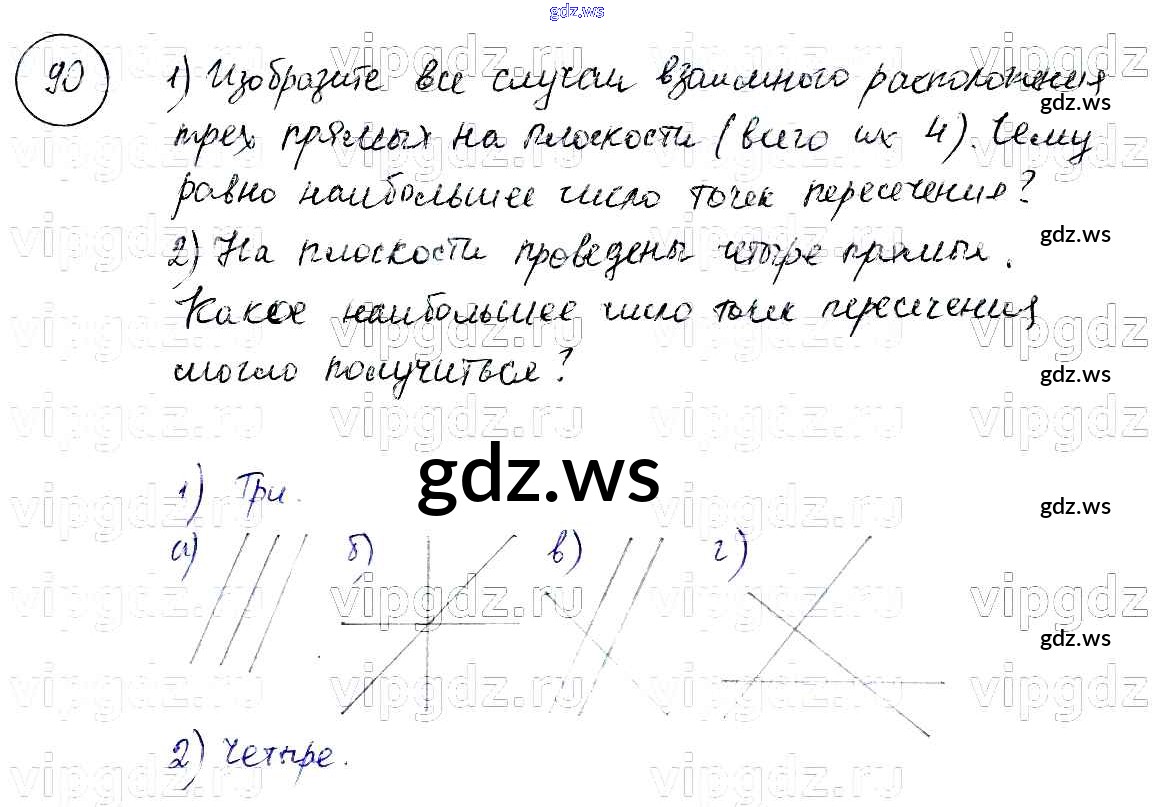 gdz.ws
90
1) Изобразите все случаи взаимного расположения
трех прямых на плоскости (всего их 4). Чему
равно наибольшее число точек пересечения?
2) На плоскости проведены четыре прямые.
Какое наибольшее число точек пересечения
могло получиться?
1) Три.
а) б) в) г)
2) Четыре.
vipgdz.ru vipgdz.ru vipgdz.ru vipgdz
gdz.ws
gdz.ws
gdz.ws
gdz.ws
gdz.ws
gdz.ws